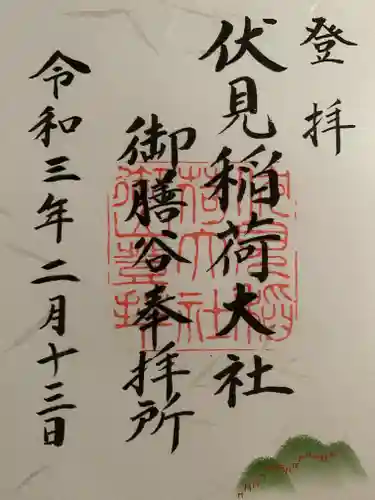 登拝
伏見稲荷大社
御膳谷奉拝所
令和三年二月十三日